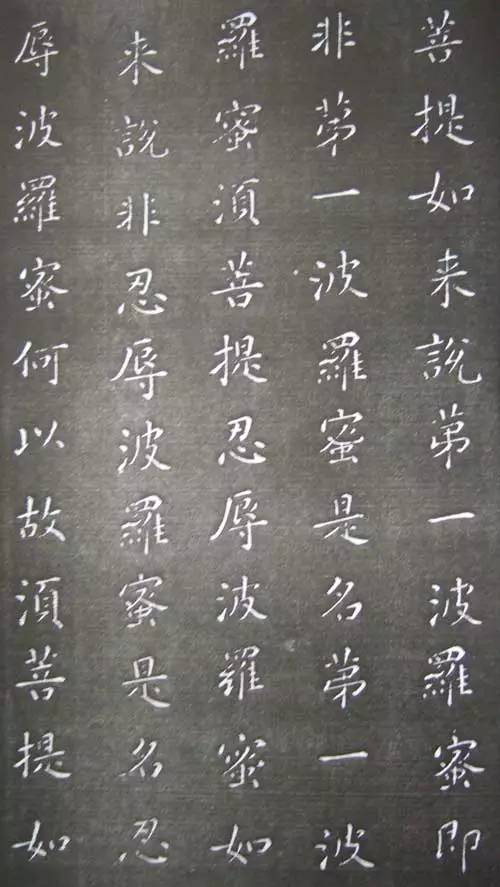 菩提如来說苐一波羅蜜即
非苐一波羅蜜是名苐一波
羅蜜須菩提忍辱波羅蜜如
来說非忍辱波羅蜜是名忍
辱波羅蜜何以故須菩提如